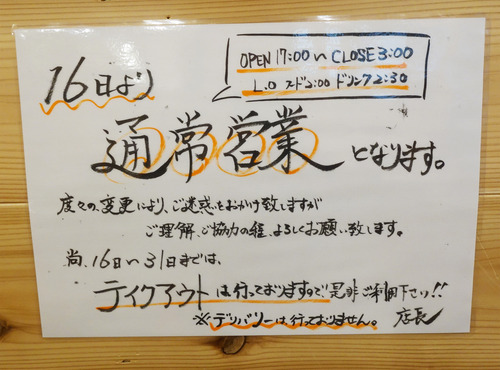 OPEN 17:00〜CLOSE 3:00
L.O フード2:00 ドリンク2:30
16日より
通常営業となります。
度々の変更により、ご迷惑をおかけ致しますが
ご理解、ご協力の程、よろしくお願い致します。
尚、16日〜31日までは、
テイクアウトは行っておりますので是非ご利用下さい!!
※デリバリーは行っておりません。 店長